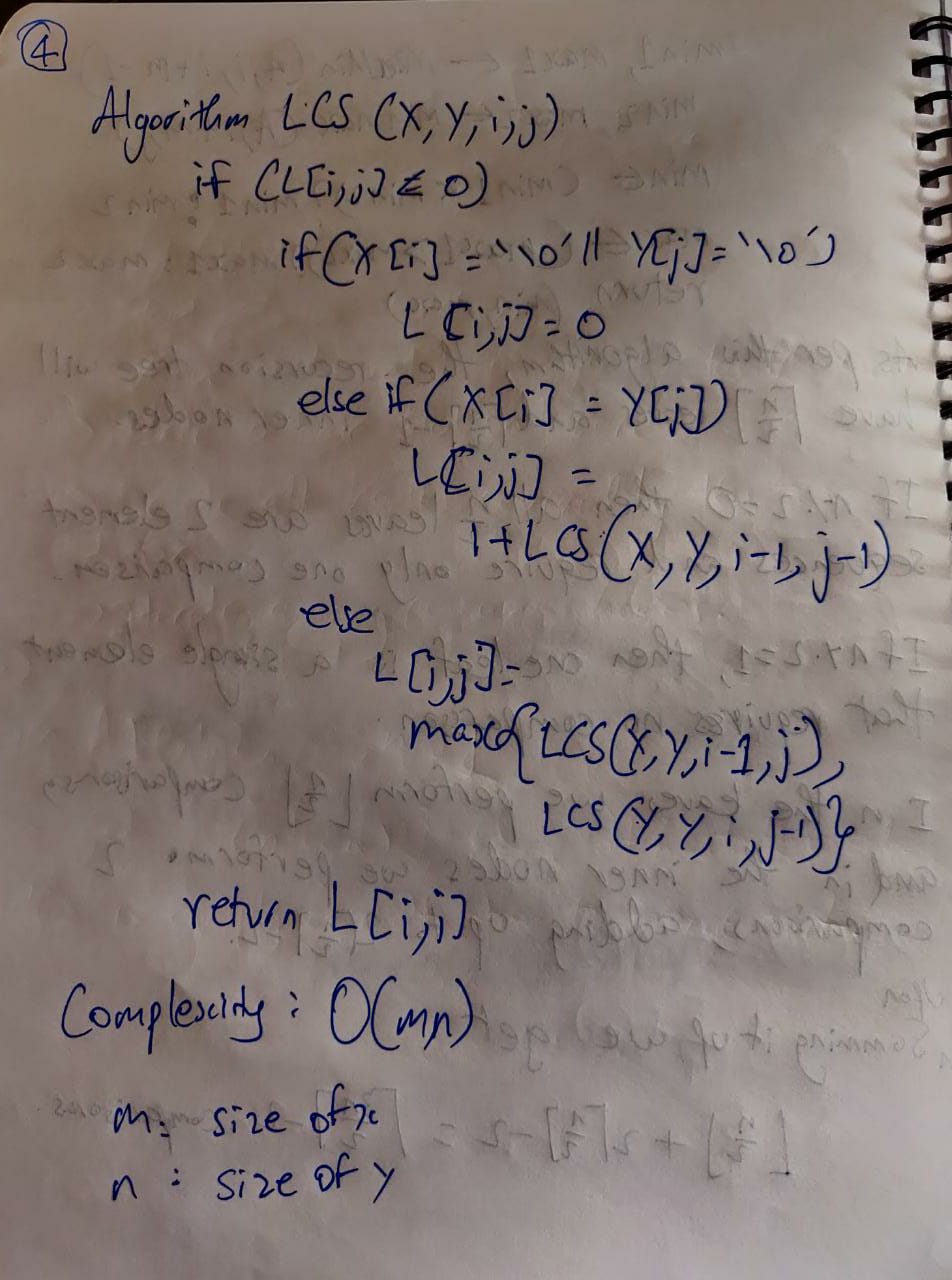 4
Algorithm LCS (X, Y, i, j)
if (L[i,j] ≤ 0)
if (X[i] = '\0' || Y[j] = '\0')
L[i,j] = 0
else if (X[i] = Y[j])
L[i,j] =
1+LCS(X, Y, i-1, j-1)
else
L[i,j] =
max{LCS(X,Y,i-1,j),
LCS(Y,Y,i,j-1)}
return L[i,j]
Complexity : O(mn)
m: size of x
n : size of y